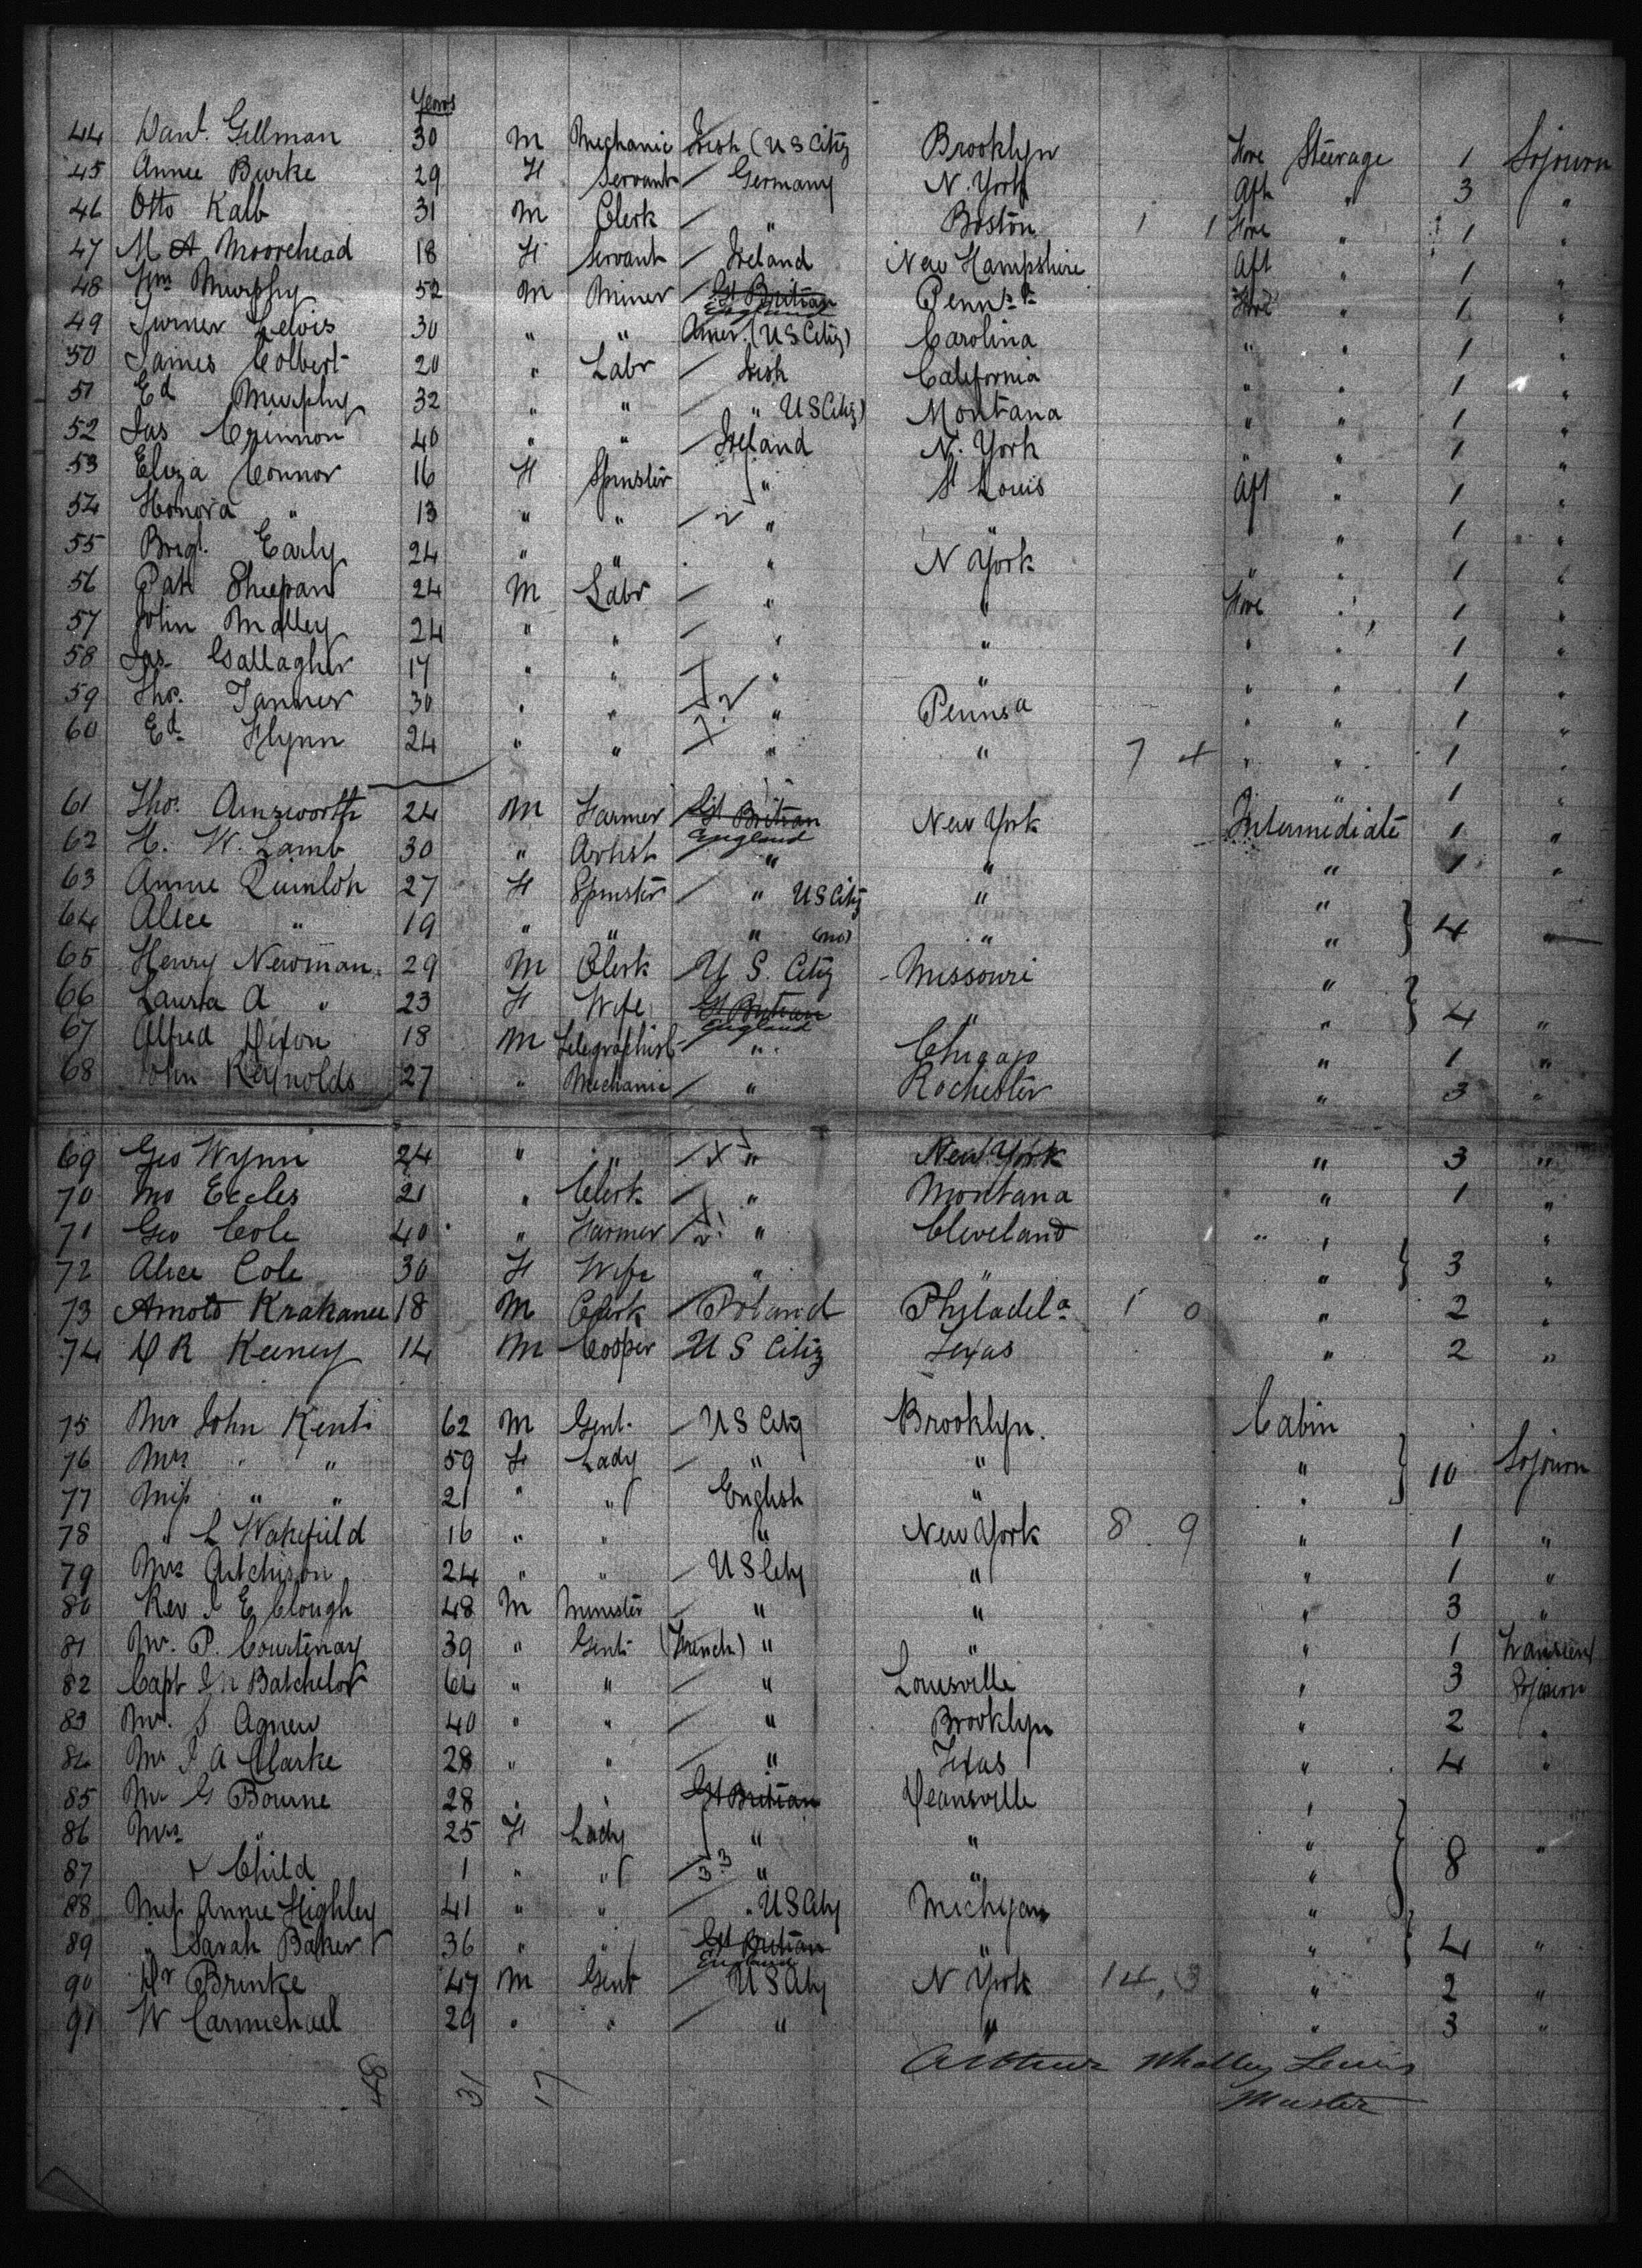 Years
44 Danl. Gillman 30 M Mechanic Irish (US City Brooklyn Fore Steerage 1 Sojourn
45 Annie Burke 29 F Servant Germany N. York Aft " 3 "
46 Otto Kalb 31 M Clerk " Boston 1 1 Fore " 1 "
47 M A Moorehead 18 F Servant Ireland New Hampshire Aft " 1 "
48 Wm Murphy 52 M Miner Gt Britian England Penns. Fore " 1 "
49 Turner Lewis 30 " " Amer. (US City) Carolina " " 1 "
50 James Colbert 20 " Labr Irish California " " 1 "
51 Ed Murphy 32 " " " US City) Montana " " 1 "
52 Jas Crinnon 40 " " Ireland N. York " " 1 "
53 Eliza Connor 16 F Spinster " St Louis Aft " 1 "
54 Honora " 13 " " 2 " " " " 1 "
55 Brigt. Early 24 " " " N York " " 1 "
56 Pat Sheepan 24 M Labr " " Fore " 1 "
57 John Malley 24 " " " " " " 1 "
58 Jas Gallagher 17 " " " " " " 1 "
59 Thos. Tanner 30 " " 2 " Pennsa " " 1 "
60 Ed Flynn 24 " " " " 7 4 " " 1 "
61 Thos. Ainsworth 24 M Farmer Gt Britian England New York Intermediate 1 "
62 H. W. Lamb 30 " Artist " " " 1 "
63 Annie Quinlon 27 F Spinster " US City " "
64 Alice " 19 " " " (no) " " 4 "
65 Henry Newman 29 M Clerk U S. City Missouri "
66 Laura A " 23 F Wife Gt Britian England " " 4 "
67 Alfred Dixon 18 M Telegraphist " Chicago " 1 "
68 John Reynolds 27 " Mechanic " Rochester " 3 "
69 Geo Wynn 24 " " " New York " 3 "
70 Mo Eccles 21 " Clerk " Montana " 1 "
71 Geo Cole 40 " Farmer 2 " Cleveland " "
72 Alice Cole 30 F Wife " " " 3 "
73 Arnold Krakanee 18 M Clerk Poland Philadela 1 0 " 2 "
74 D R Keeney 14 M Cooper U S City Texas " 2 "
75 Mr John Kent 62 M Gent. US City Brooklyn. Cabin
76 Mrs " " 59 F Lady " " " 10 Sojourn
77 Miss " " 21 " " English " "
78 " L Wakefield 16 " " " New York 8 9 " 1 "
79 Mrs Aitchison 24 " " US City " " 1 "
80 Rev J E Clough 48 M Minister " " " 3 "
81 Mr. P. Courtenay 39 " Gent (French) " " " 1 Transient
82 Capt Batchelor 62 " " " Louisville " 3 Sojourn
83 Mr. S Agnew 40 " " " Brooklyn " 2 "
84 Mr J A Clarke 28 " " " Texas " 4 "
85 Mr G Bourne 28 " " Gt Britian Deansville "
86 Mrs " 25 F Lady " " " 8 "
87 & Child 1 " " 3 3 " " "
88 Miss Annie Highley 41 " " " US City Michigan "
89 " Sarah Baker 36 " " Gt Britian England " " 4 "
90 Dr Brinke 47 M Gent US City N York 14, 3 " 2 "
91 W Carmichael 29 " " " " " 3 "
31 17
Arthur Whalley Lewis
Master